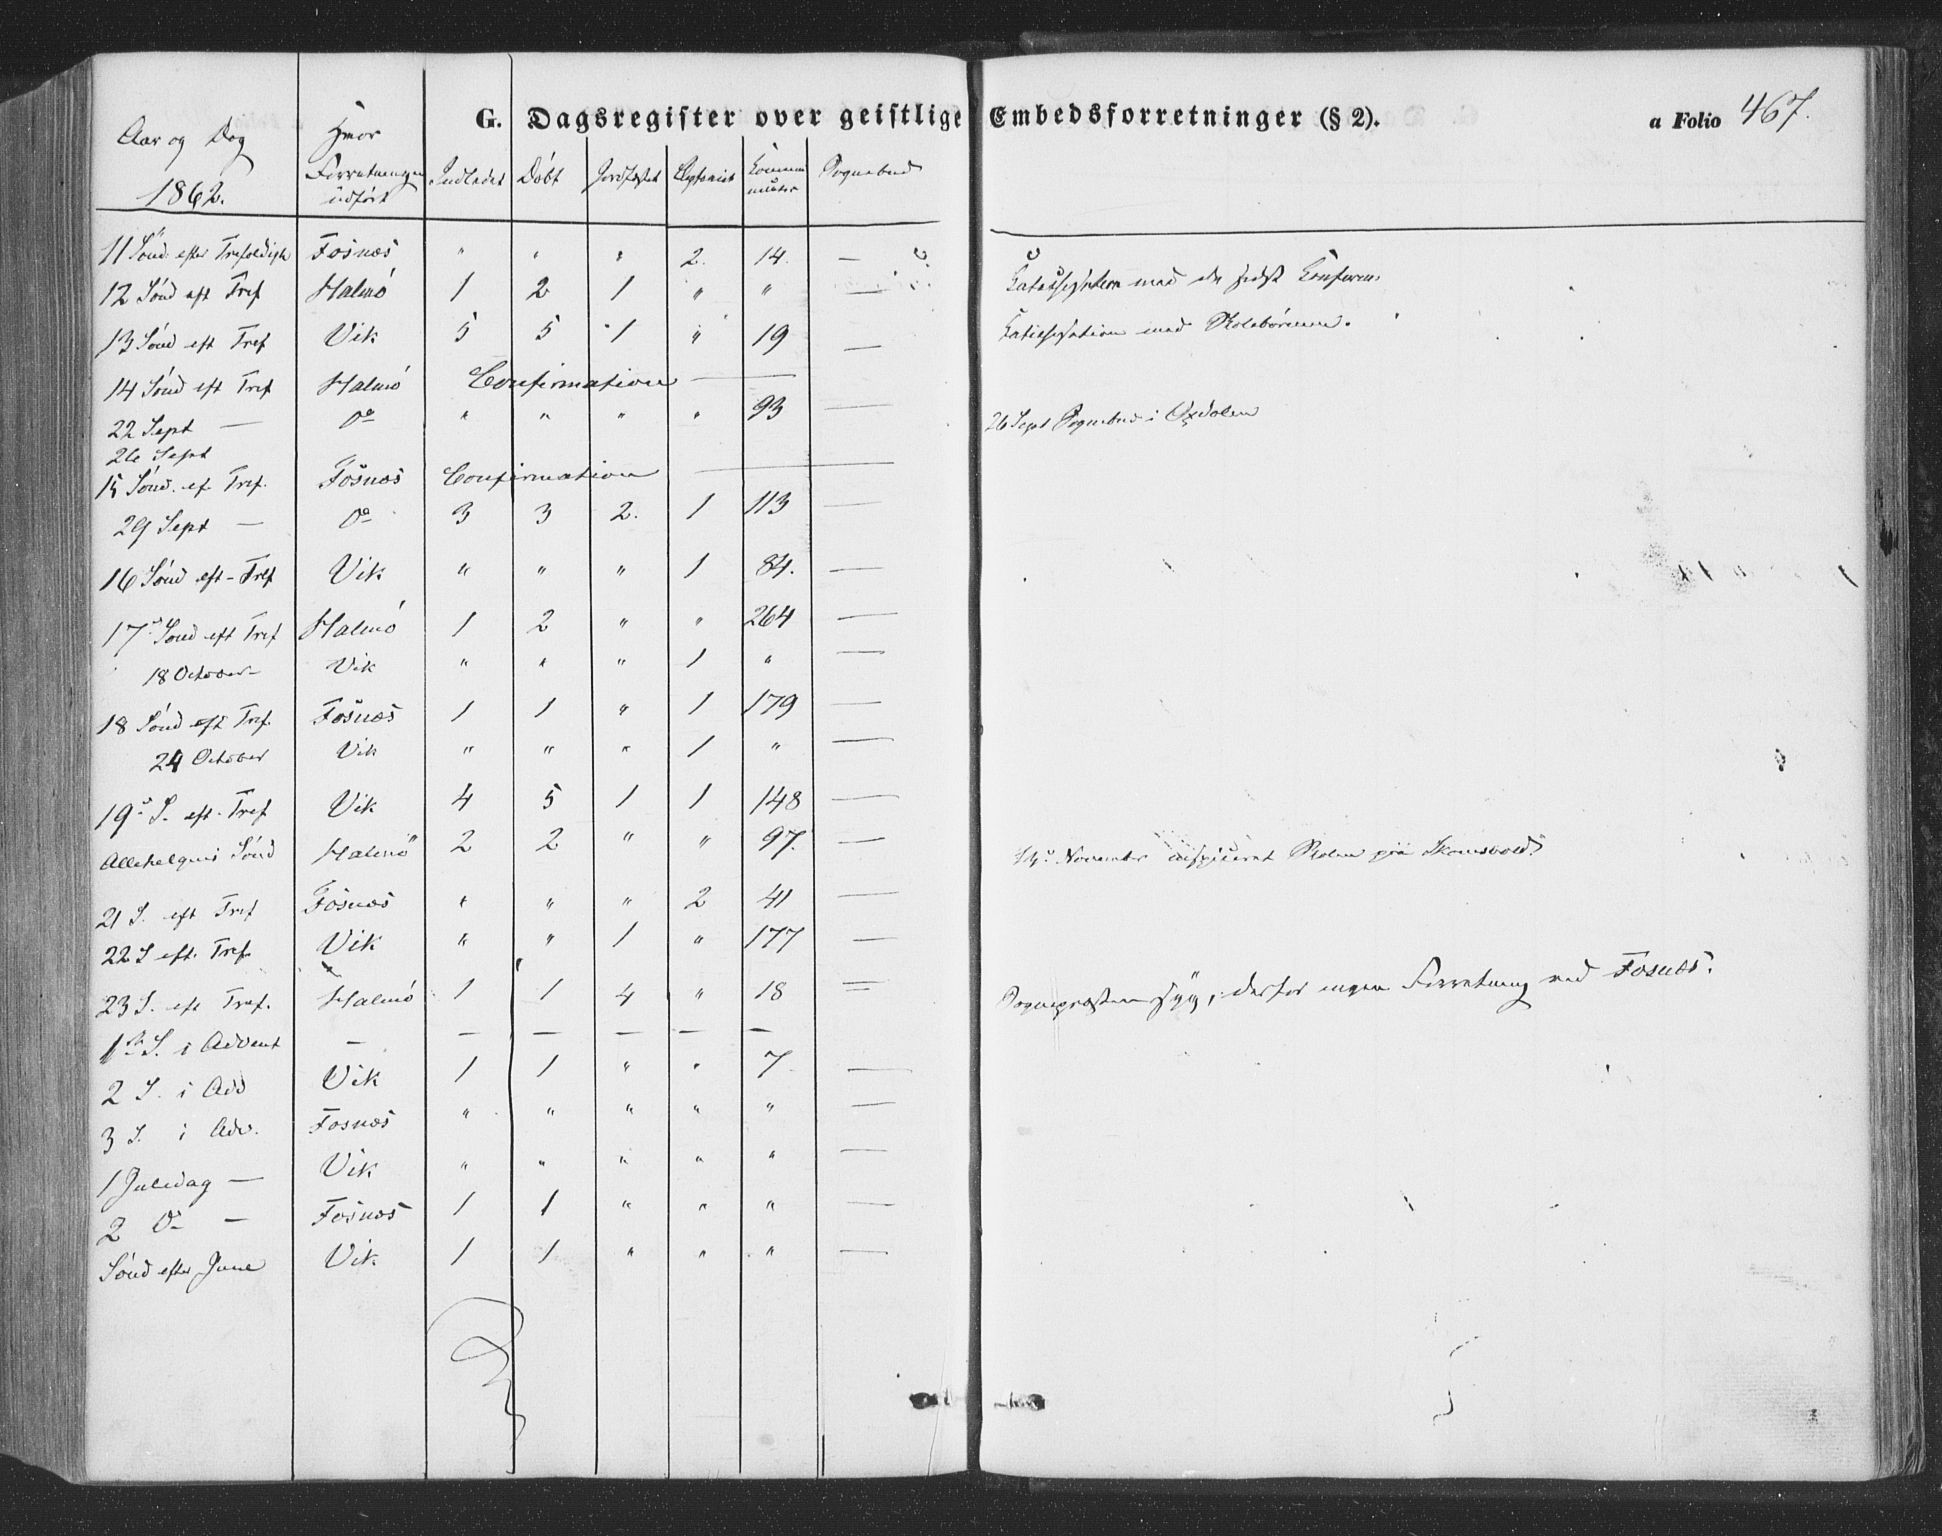 G. Dagsregister over geistlige Embedsforretninger (§ 2). a Folio 467.
Aar og Dag 1862. Hvor Forretningen udført Indledet Døbt Jordfæstet Copuleret Sognebud
11 Sønd. efter Trefoldigh Fosnæs " " " 2. 14. —
12 Sønd eft Tref Halmö 1 2 1 " " —
13 Sønd eft Tref Vik 5 5 1 " 19 — med Skolebørnene.
14 Sønd eft Tref Halmö Confirmation —
22 Sept — Do " " " " 93 — 26 Sept Sognebud i Oxdalen
26 Sept
15 Sønd. ef. Tref. Fosnæs Confirmation —
29 Sept — Do 3 3 2. 1 113 —
16 Sønd eft Tref Vik " " " 1 84. —
17 Sønd eft Tref Halmö 1 2 " " 264 —
18 October Vik " " " 1 " —
18 Sønd eft Tref. Fosnæs 1 1 " 1 179 —
24 October Vik " " " 1 " —
19 S. eft. Tref Vik 4 5 1 1 148 —
Allehelgens Sønd Halmö 2 2 " " 97. — 14. November inspiceret Skolen paa
21 S. eft Tref Fosnæs " " " 2 41 —
22 S eft. Tref. Vik " " 1 " 177 —
23 S. eft Tref. Halmö 1 1 4 " 18 = Sognepræsten syg, derfor ingen Forretning ved Fosnæs.
1ste S. i Advent — — — — — —
2 S. i Adv Vik 1 1 " " 7 —
3 S. i Adv. Fosnæs " " " " " —
1 Juledag — Vik " " " " " —
2 Do — Fosnæs 1 1 " " " —
Sønd efter Juul Vik 1 1 " " " —